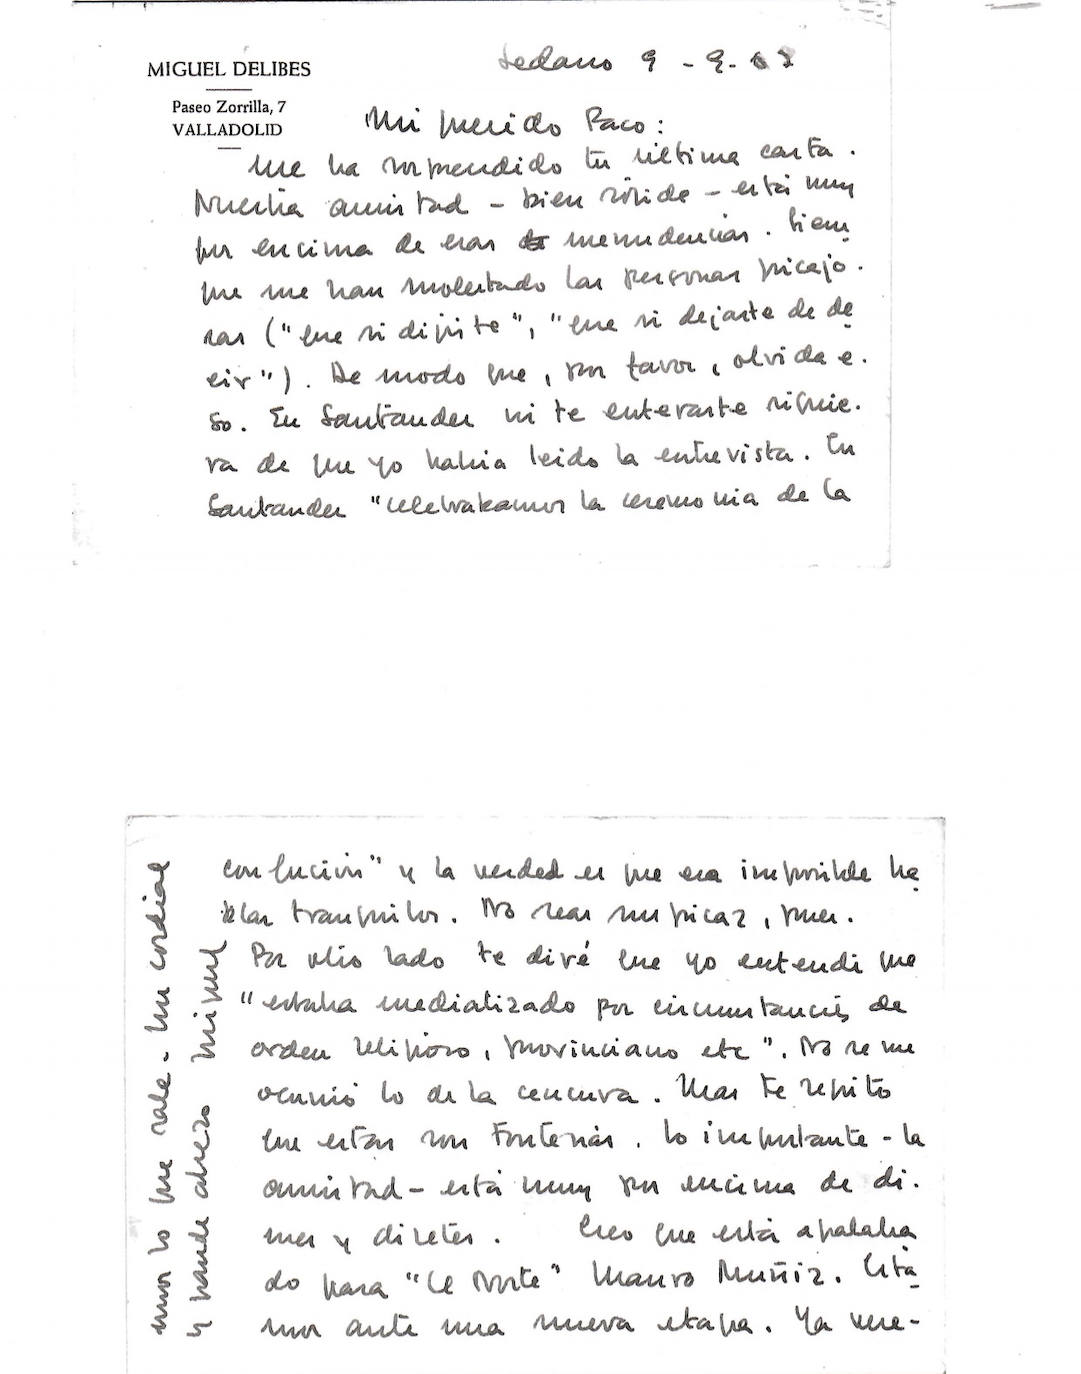 MIGUEL DELIBES
Paseo Zorrilla, 7
VALLADOLID
Sedano 9 - 9 - 63
Mi querido Paco:
Me ha sorprendido tu última carta.
Nuestra amistad - bien sólida - está muy
por encima de esas menudencias. Siem
pre me han molestado las personas picajo-
sas ("que si dijiste", "que si dejaste de de
cir"). De modo que, por favor, olvida e-
so. En Santander ni te enteraste siquie-
ra de que yo había leido la entrevista. En
Santander "celebrabamos la ceremonia de la
confución" y la verdad es que era imposible ha
blar tranquilos. No seas suspicaz, pues.
Por otro lado te diré que yo entendí que
"estaba mediatizado por circunstancias de
orden religioso, provinciano etc". No se me
ocurrió lo de la censura. Mas te repito
que estas son tonterías. Lo importante - la
amistad - está muy por encima de di-
mes y diretes. Creo que está apalabra
do para "El Norte" Mauro Muñiz. Esta
mos ante una nueva etapa. Ya vere-
mos lo que sale. Un cordial
y grande abrazo Miguel